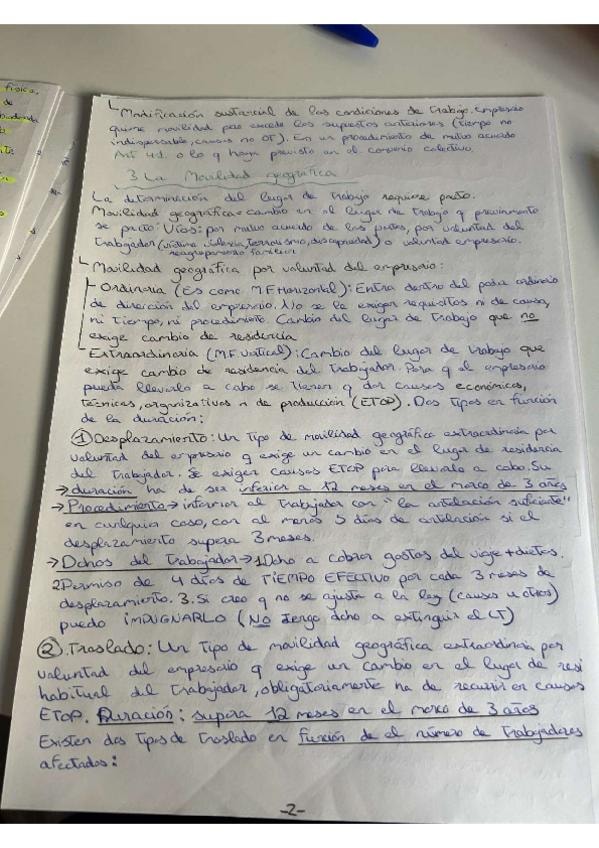 física,
de
Modificación sustancial de las condiciones de trabajo. Empresario
quiere movilidad pero excede los supuestos anteriores (tiempo no
indispensable, causas no OT). En un procedimiento de mutuo acuerdo
Art 41. o lo q haya previsto en el convenio colectivo.
3. La Movilidad geográfica
La determinación del lugar de trabajo requiere pacto.
Movilidad geográfica = cambio en el lugar de trabajo q previamente
se pactó. Vías: por mutuo acuerdo de las partes, por voluntad del
trabajador (víctima violencia, terrorismo, discapacidad) o voluntad empresario.
reagrupamiento familiar
Movilidad geográfica por voluntad del empresario:
Ordinaria (Es como MF Horizontal): Entra dentro del poder ordinario
de dirección del empresario. No se le exigen requisitos ni de causa,
ni tiempo, ni procedimiento. Cambio del lugar de trabajo que no
exige cambio de residencia
Extraordinaria (MF Vertical): Cambio del lugar de trabajo que
exige cambio de residencia del trabajador. Para q el empresario
pueda llevarlo a cabo se tienen q dar causas económicas,
técnicas, organizativas o de producción (ETOP). Dos tipos en función
de la duración:
① Desplazamiento: Un tipo de movilidad geográfica extraordinaria por
voluntad del empresario q exige un cambio en el lugar de residencia
del trabajador. Se exigen causas ETOP para llevarlo a cabo. Su
→ duración ha de ser inferior a 12 meses en el marco de 3 años
→ Procedimiento → informar al trabajador con "la antelación suficiente"
en cualquier caso, con al menos 5 días de antelación si el
desplazamiento supera 3 meses.
→ Dchos del trabajador → 1. Dcho a cobrar gastos del viaje + dietas.
2. Permiso de 4 días de TIEMPO EFECTIVO por cada 3 meses de
desplazamiento. 3. Si creo q no se ajusta a la ley (causas u otros)
puedo IMPUGNARLO (NO tengo dcho a extinguir el CT)
② Traslado: Un tipo de movilidad geográfica extraordinaria por
voluntad del empresario q exige un cambio en el lugar de resi
habitual del trabajador, obligatoriamente ha de recurrir en causas
ETOP. Duración: supera 12 meses en el marco de 3 años
Existen dos tipos de traslado en función de el número de trabajadores
afectados:
-2-